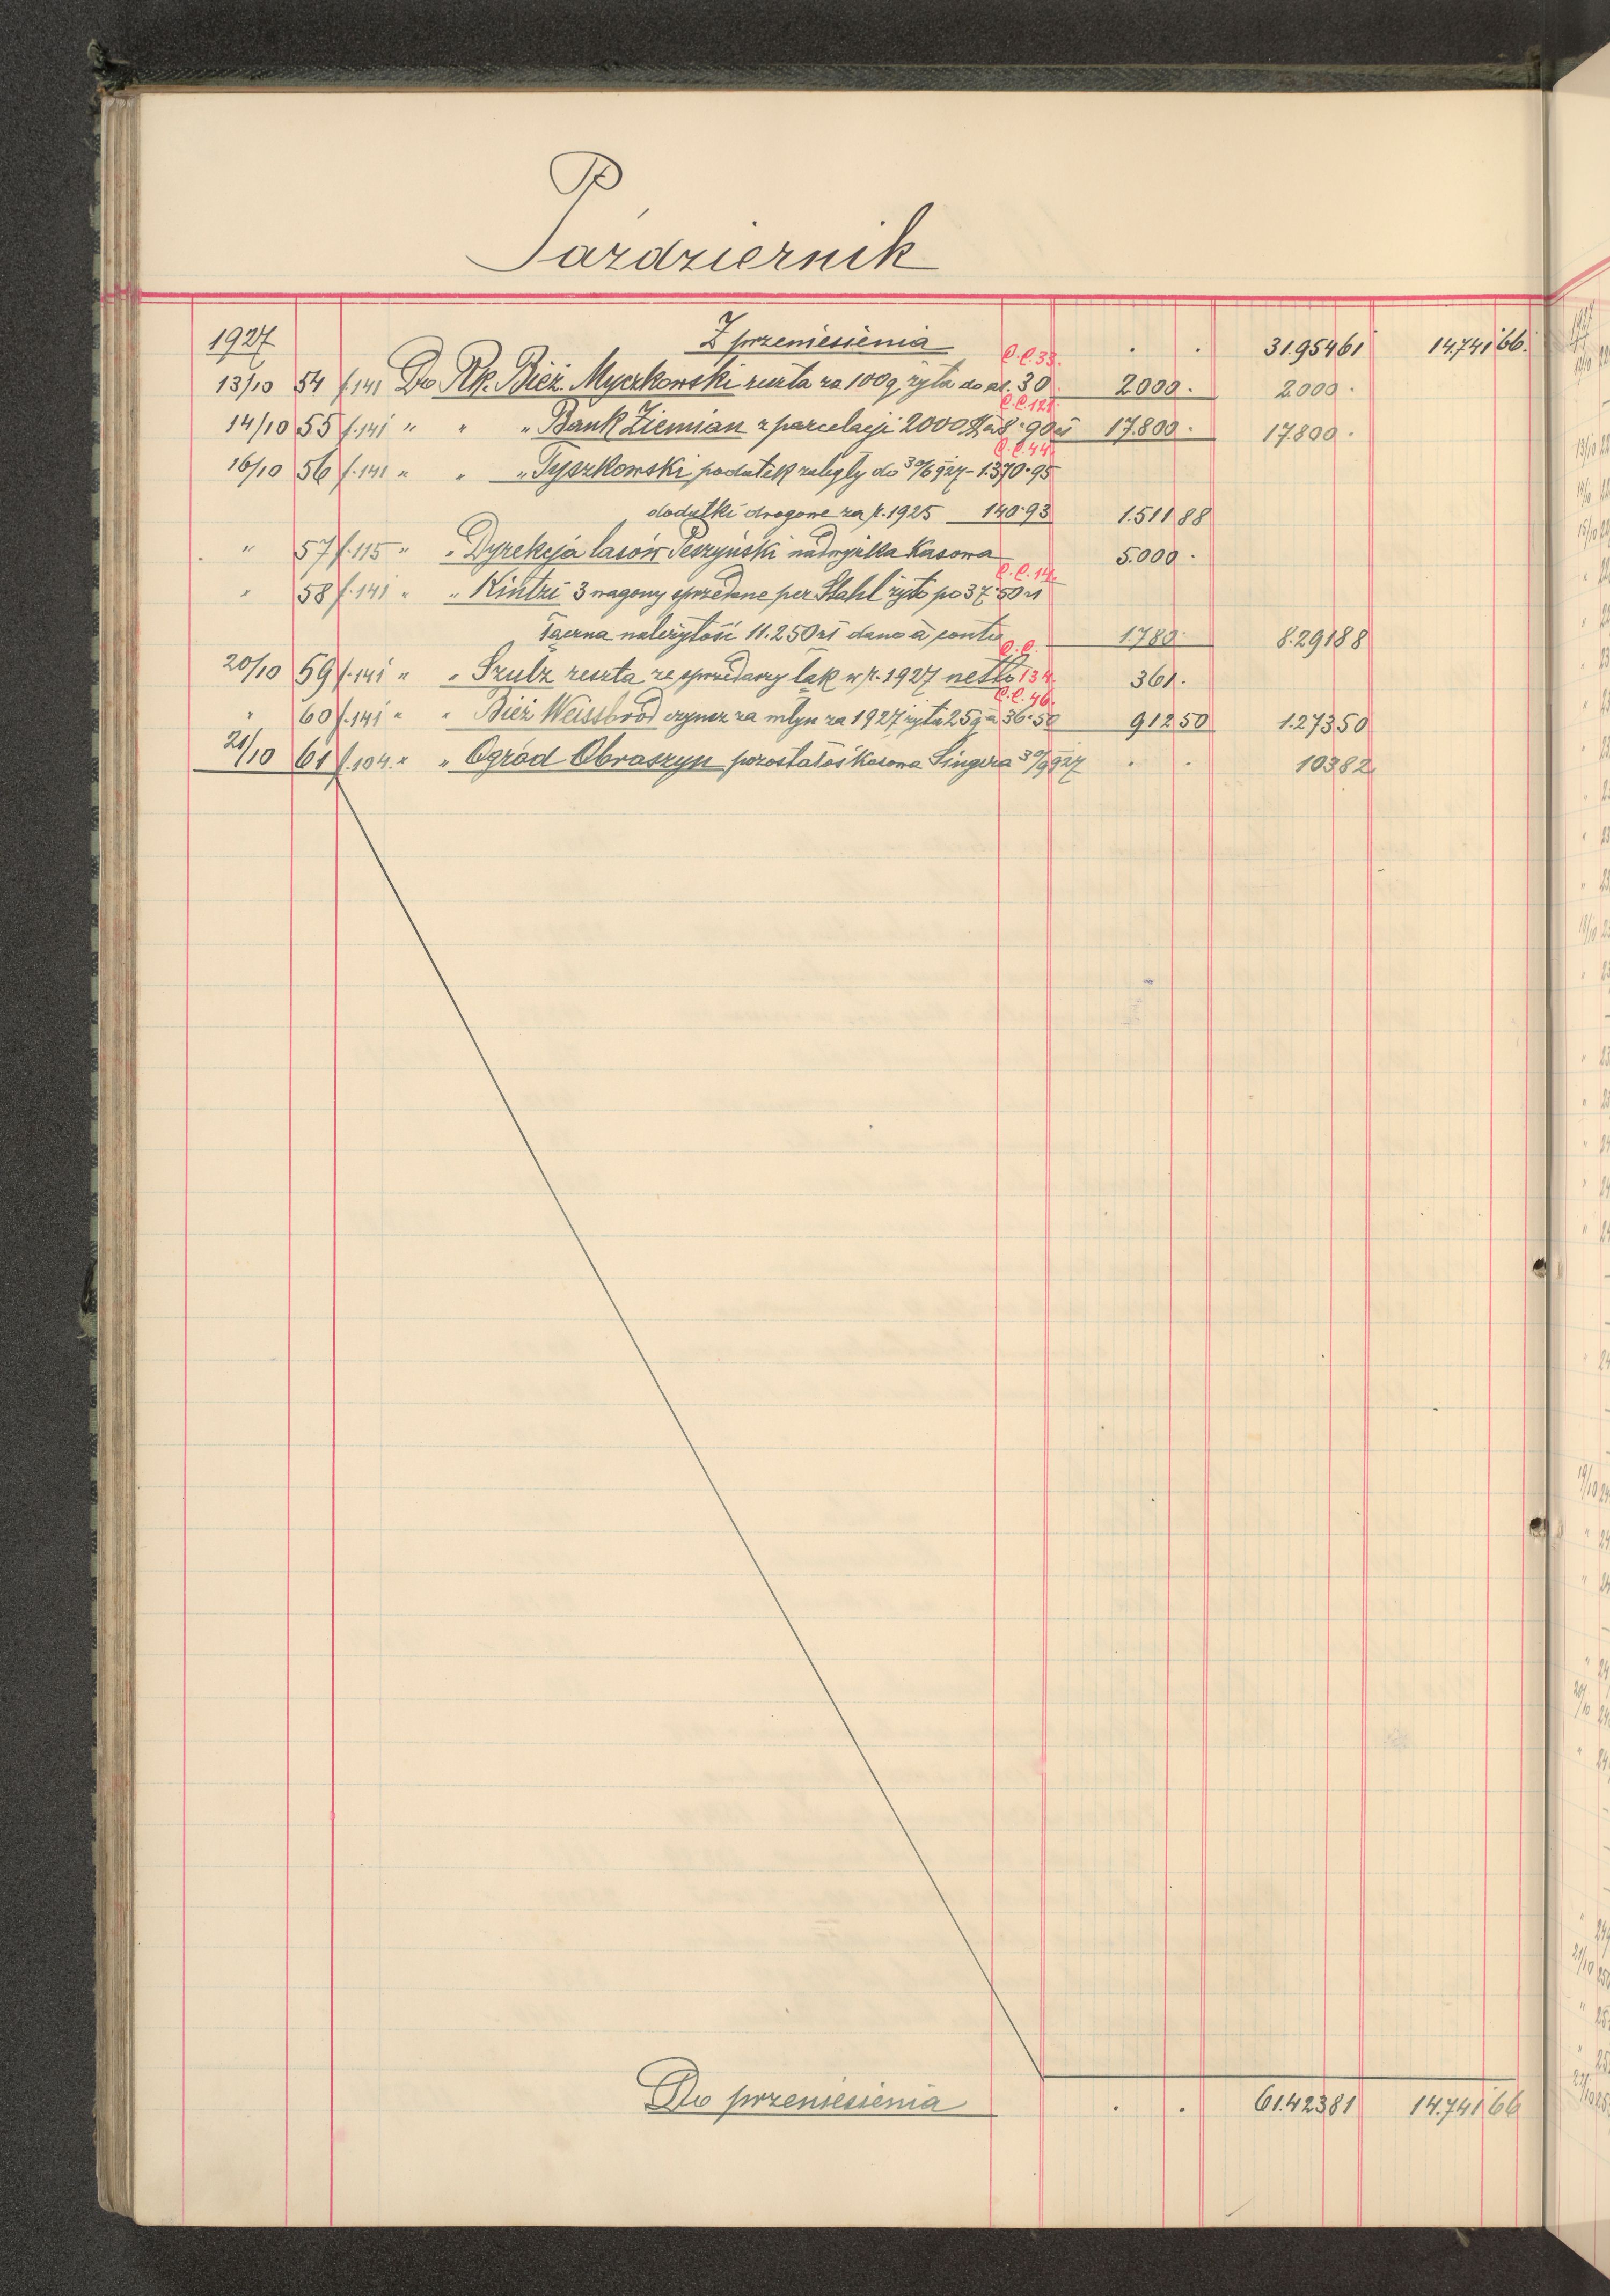 Październik
1927 Z przeniesienia . . 31.954 61 14.741 66.
C.C. 33.
13/10 54 f.141 Do Rk. Bież. Myczkowski reszta za 100 q żyta do 30 2000 . 2000 .
C.C. 121.
14/10 55 f.141 " " " Bank Ziemian z parcelacji 2000 8·90 zł 17.800 . 17.800 .
C.C. 44.
16/10 56 f.141 " " " Tyszkowski podatek zaległy do 30/6 927 - 1.370·95
dodatki drogowe za r. 1925 140·93 1.511 88
" 57 f.115 " " Dyrekcja lasów Peszyński nadwyżka Kasowa 5.000 .
C.C. 14.
" 58 f.141 " " Kintzi 3 wagony sprzedane per Stahl żyto po 37·50 zł
Łączna należytość 11.250 zł dano à conto 1.780 . 8.291 88
C.C.
20/10 59 f.141 " " Szulz reszta ze sprzedaży łąk w r. 1927 netto 134. 361 .
C.C. 46.
" 60 f.141 " " Bież Weissbrod czynsz za młyn za 1927 żyta 25 q à 36·50 912 50 1.273 50
21/10 61 f.104 " " Ogród Obroszyn pozostałoś Kasowa Singera 30/9 927 . . 103 82
Do przeniesienia . . 61.423 81 14.741 66